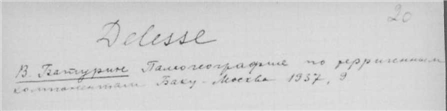 20
Delesse
В. Батурин Палеография по терригенным
компонентам Баку - Москва 1937, 9